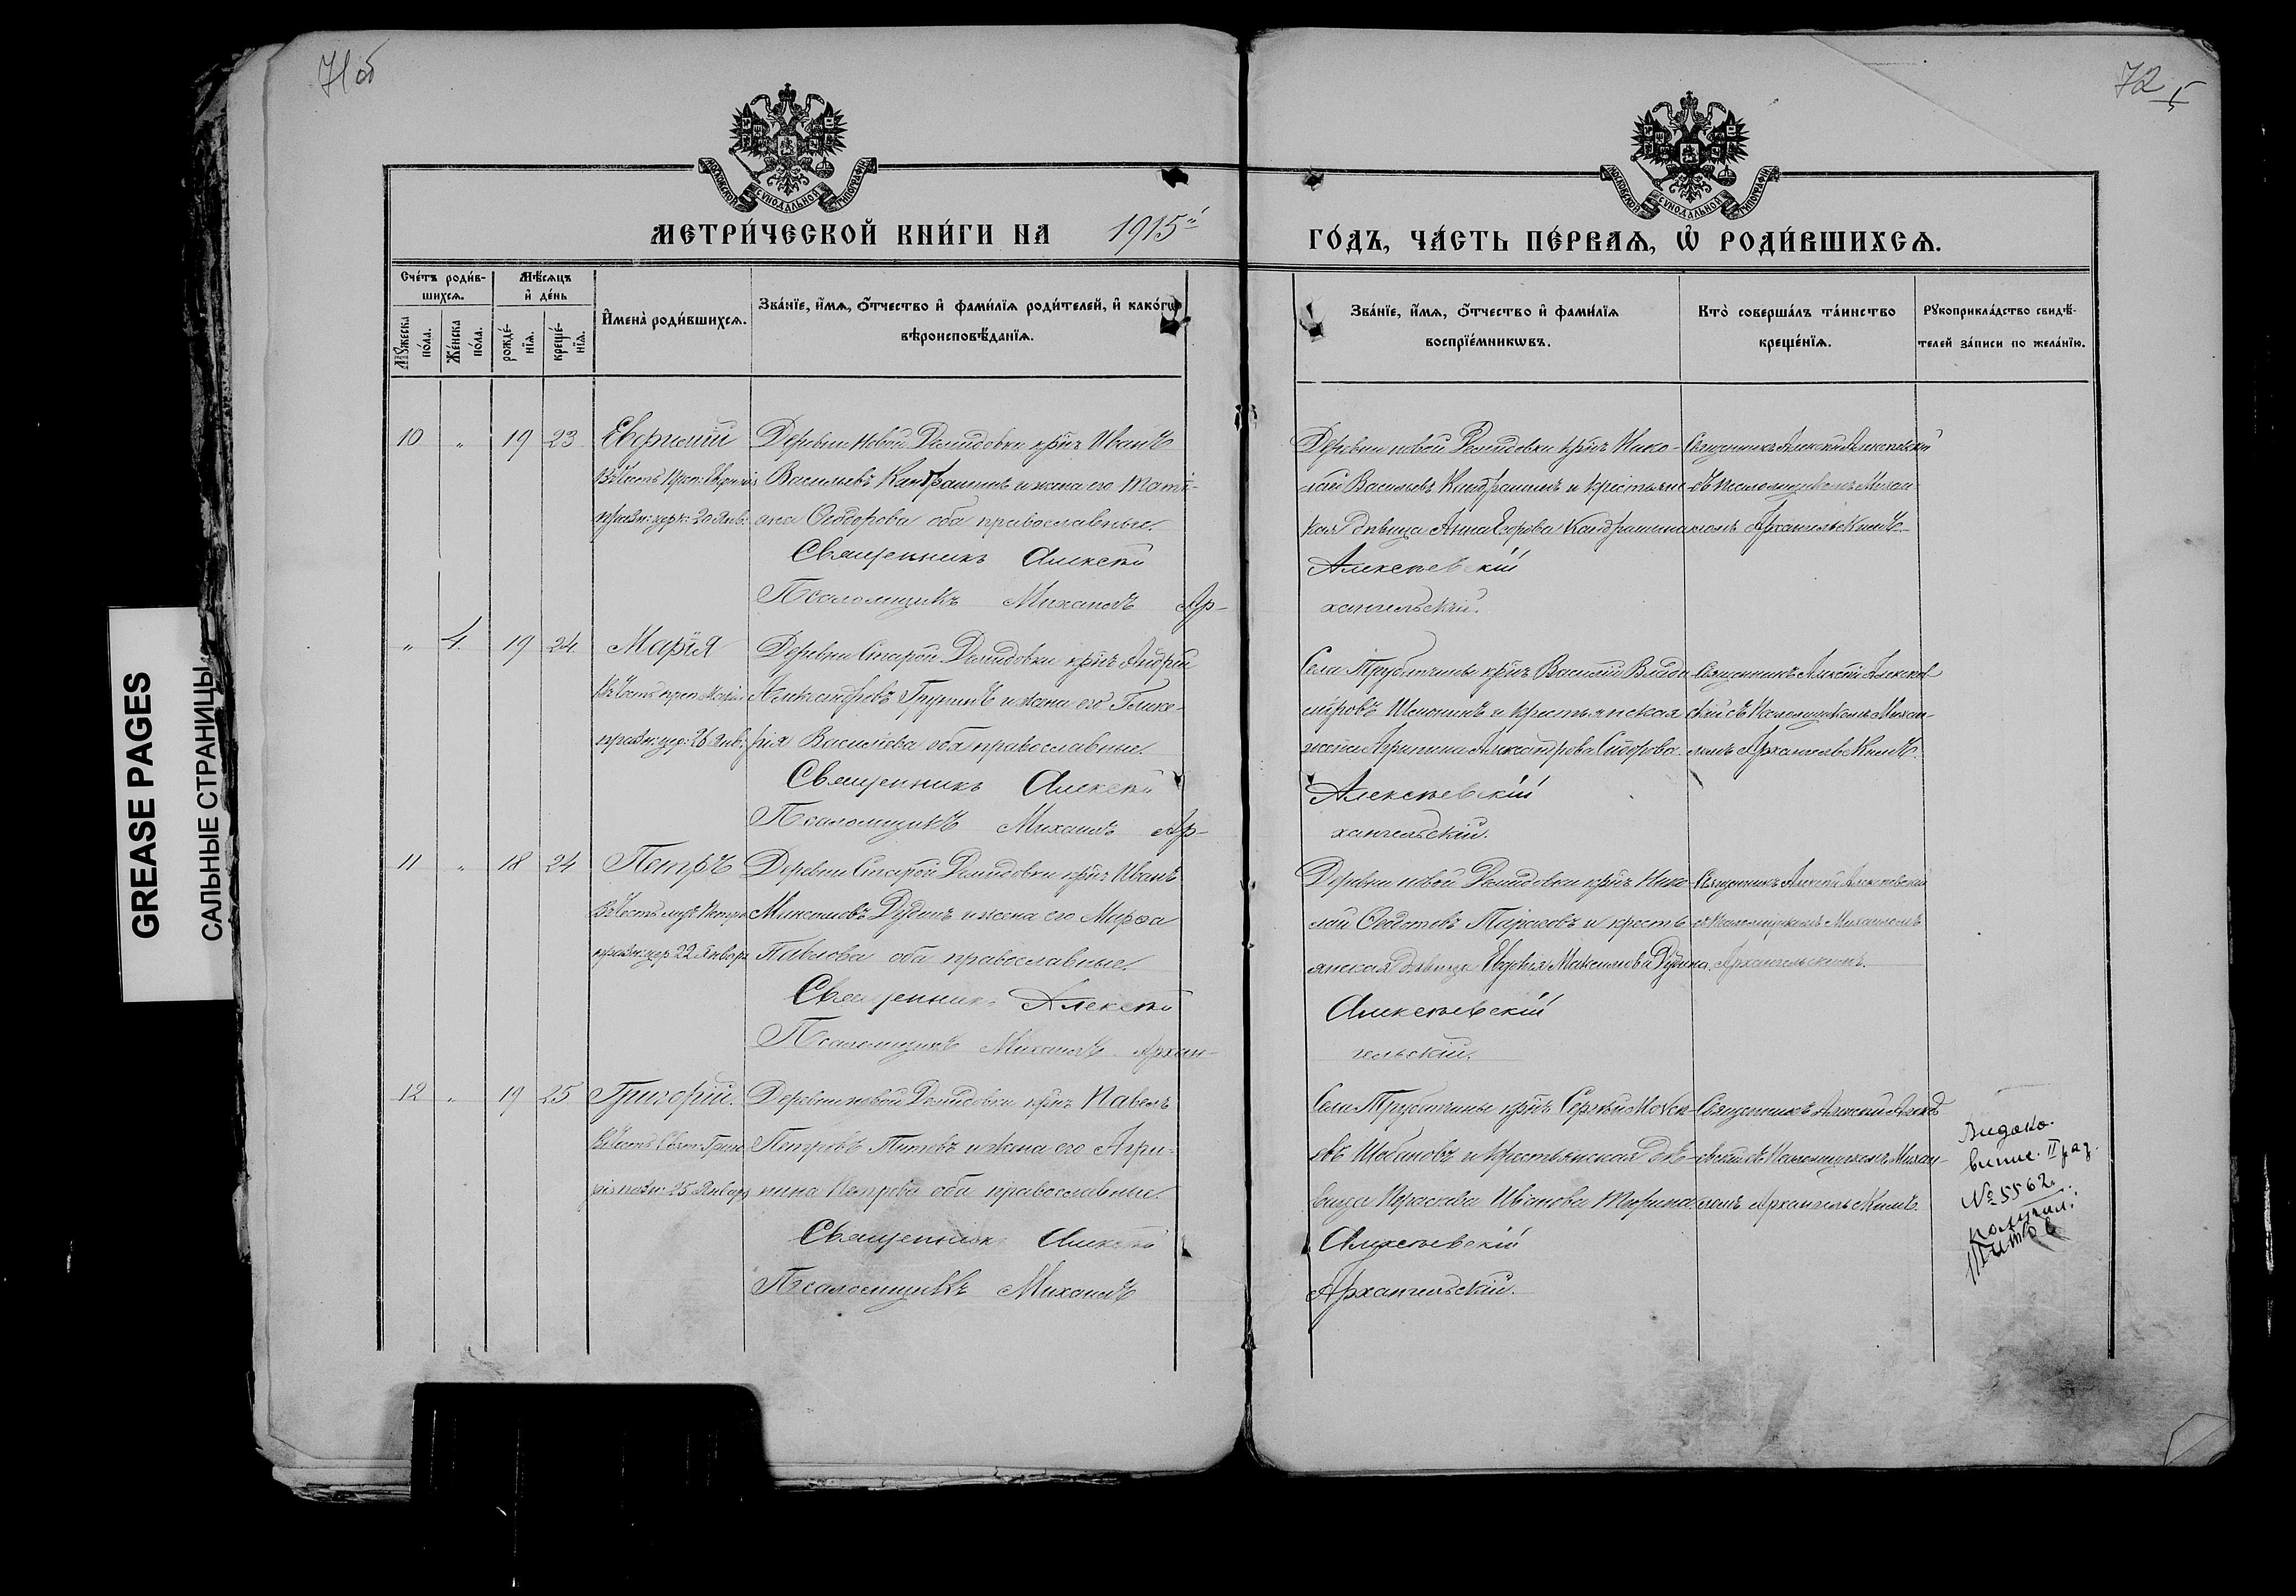 71 об
72
МОСКОВСКОЙ СѴНОДАЛЬНОЙ ТИПОГРАФІИ
МОСКОВСКОЙ СѴНОДАЛЬНОЙ ТИПОГРАФІИ
МЕТРИ́ЧЕСКОЙ КНИ́ГИ НА 1915й
ГО́ДЪ, ЧА́СТЬ ПЕ́РВАѦ, Ѡ҆ РОДИ́ВШИХСѦ.
Сче́тъ роди́в-
шихсѧ.
Мѣ́сѧцъ
и҆ де́нь
Мꙋ́жеска
по́ла.
Же́нска
по́ла.
рожде́-
нїѧ.
креще́-
нїѧ.
И҆мена̀ роди́вшихсѧ.
Зва́нїе, и҆́мѧ, ѻ҆́тчество и҆ фами́лїѧ роди́телей, и҆ како́гѡ
вѣроисповѣ́данїѧ.
Зва́нїе, и҆́мѧ, ѻ҆́тчество и҆ фами́лїѧ
воспрїе́мникѡвъ.
Кто̀ соверша́лъ та́инство
креще́нїѧ.
Рꙋкоприкла́дство свидѣ́-
телей за́писи по жела́нїю.
10 " 19 23 Евфимій Деревни Новой Демидовки крнъ Иванъ
Васильевъ Кандрашинъ и жена его Маті-
празн: церк: 20 Янв: ана Ѳеодорова оба православные.
Священникъ Алексѣй
Псаломщикъ Михаилъ Ар-
Деревни новой Демидовки крнъ Нико-
лай Васильевъ Кандрашинъ и крестьянс-
кая дѣвица Анна Егорова Кандрашина
Алексѣевскій
хангельскій.
Священникъ Алексѣй Алексѣевскій
съ псаломщикомъ Михаи-
ломъ Архангельскимъ.
" 4. 19 24. Марія Деревни Старой Демидовки крнъ Андрей
Въ честь преп. Маріи Александровъ Грунинъ и жена его Глике-
празн: цер: 26 Янв: рія Васильева оба православные.
Священникъ Алексѣй
Псаломщикъ Михаилъ Ар-
Села Трубетчины крнъ Василій Влади-
міровъ и крестьянская
жена Агрипина Александрова Сидорова.
Алексѣевскій
хангельскій.
Священникъ Алексѣй Алексѣев-
скій съ Псаломщикомъ Михаи-
ломъ Архангельскимъ.
11 " 18 24 Петръ Деревни Старой Демидовки крнъ Иванъ
Въ честь муч. Петра Максимовъ Дудинъ и жена его Марѳа
празн: цер. 22 Января Павлова оба православные.
Священникъ Алексѣй
Псаломщикъ Михаилъ Архан-
Деревни новой Демидовки крнъ Нико-
лай Ѳедотовъ и кресть-
янская дѣвица Евдокія Максимова Дудина.
Алексѣевскій
гельскій.
Священникъ Алексѣй Алексѣевскій
съ Псаломщикомъ Михаиломъ
Архангельскимъ.
12 " 19 25 Григорій. Деревни новой Демидовки крнъ Павелъ
Въ честь Свят. Григо- Петровъ Титовъ и жена его Агри-
рія празн: 25 Января пина Петрова оба православные.
Священникъ Алексѣй
Псаломщикъ Михаилъ
Села Трубетчины крнъ Сергѣй
и крестьянская дѣ-
вица Параскева Иванова
Алексѣевскій
Архангельскій.
Священникъ Алексѣй Алексѣ-
евскій съ Псаломщикомъ Михаи-
ломъ Архангельскимъ.
№ 5562.
получил:
Титов
GREASE PAGES
САЛЬНЫЕ СТРАНИЦЫ